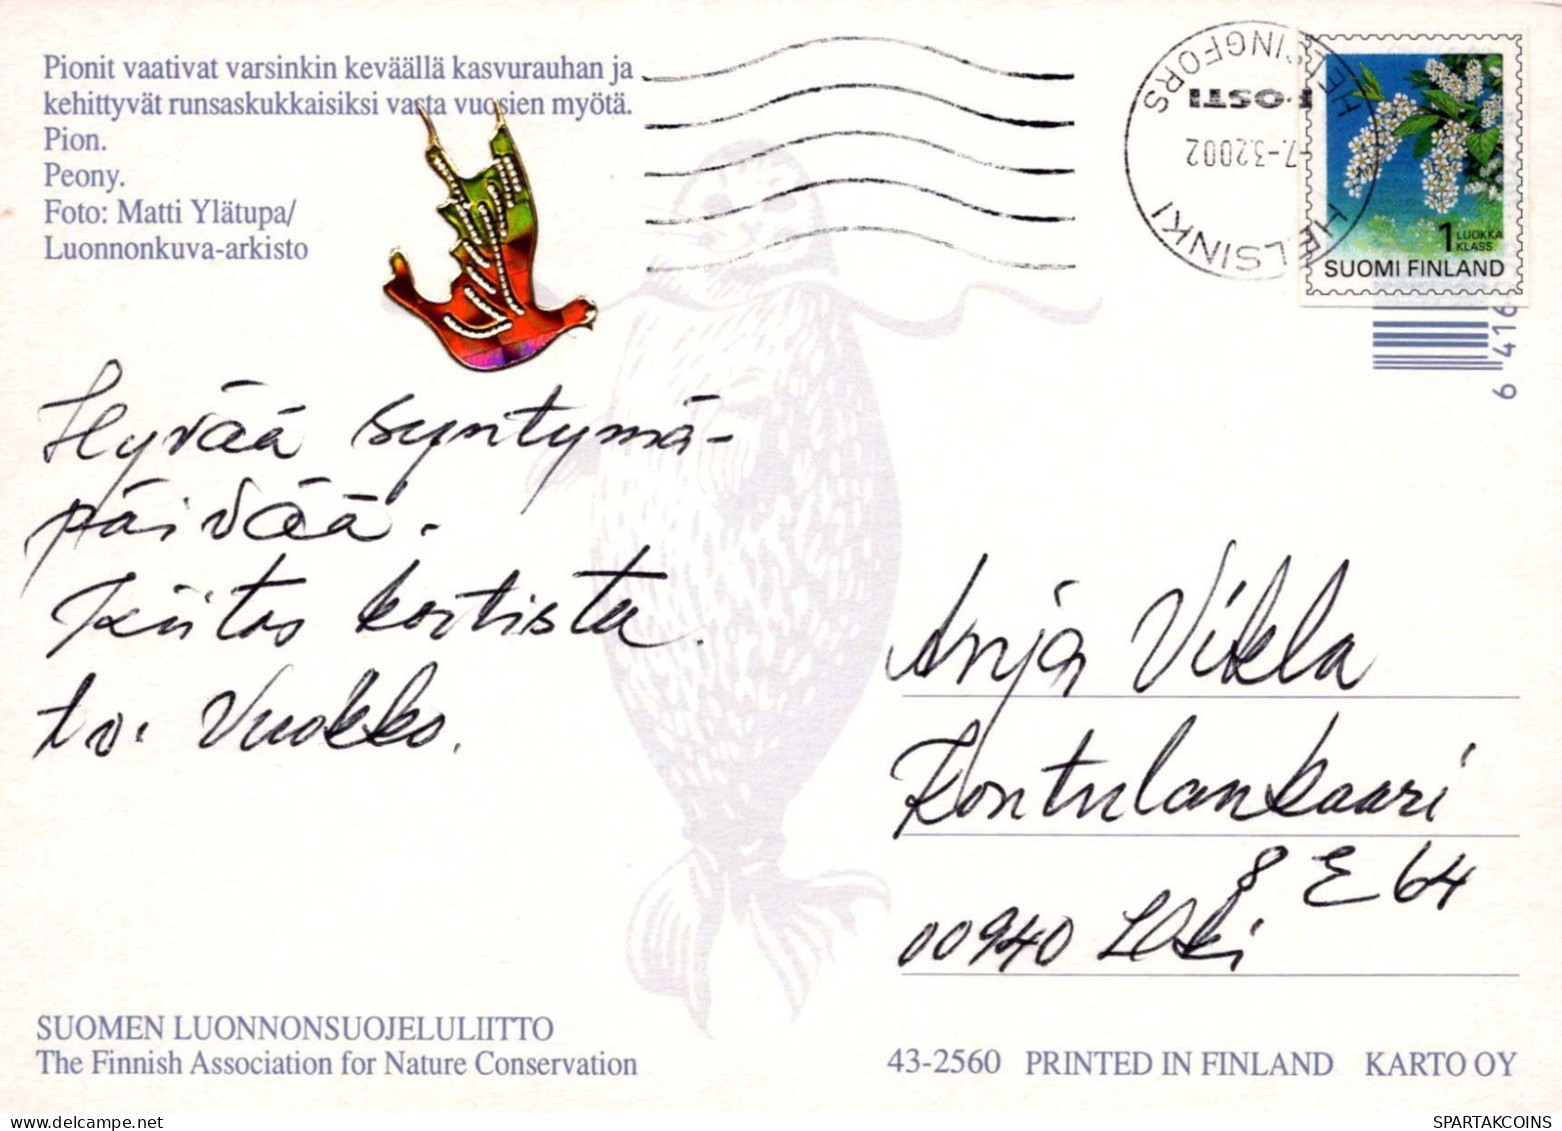 Pionit vaativat varsinkin keväällä kasvurauhan ja
kehittyvät runsaskukkaisiksi vasta vuosien myötä.
Pion.
Peony.
Foto: Matti Ylätupa/
Luonnonkuva-arkisto
HELSINGFORS
POSTI
-7.-3.2002
HELSINKI
1 LUOKKA
KLASS
SUOMI FINLAND
6 416
Hyvää syntymä-
päivää.
Kiitos kortista.
tv. Vuokko.
Anja Vikla
Kontulankaari
8 E 64
00940 Hki
SUOMEN LUONNONSUOJELULIITTO
The Finnish Association for Nature Conservation
43-2560 PRINTED IN FINLAND KARTO OY
SPARTAKCOINS